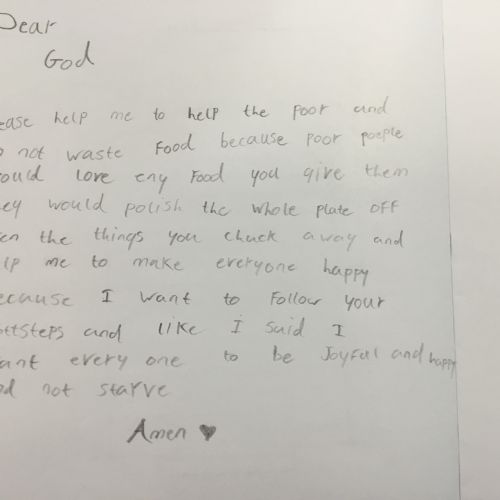 Dear
God
ease help me to help the poor and
o not waste Food because poor poeple
ould love eny Food you give them
ey would polish the whole plate off
en the things you chuck away and
lp me to make everyone happy
ecause I want to Follow your
ottsteps and like I said I
ant every one to be Joyful and happy
d not starve
Amen ♥